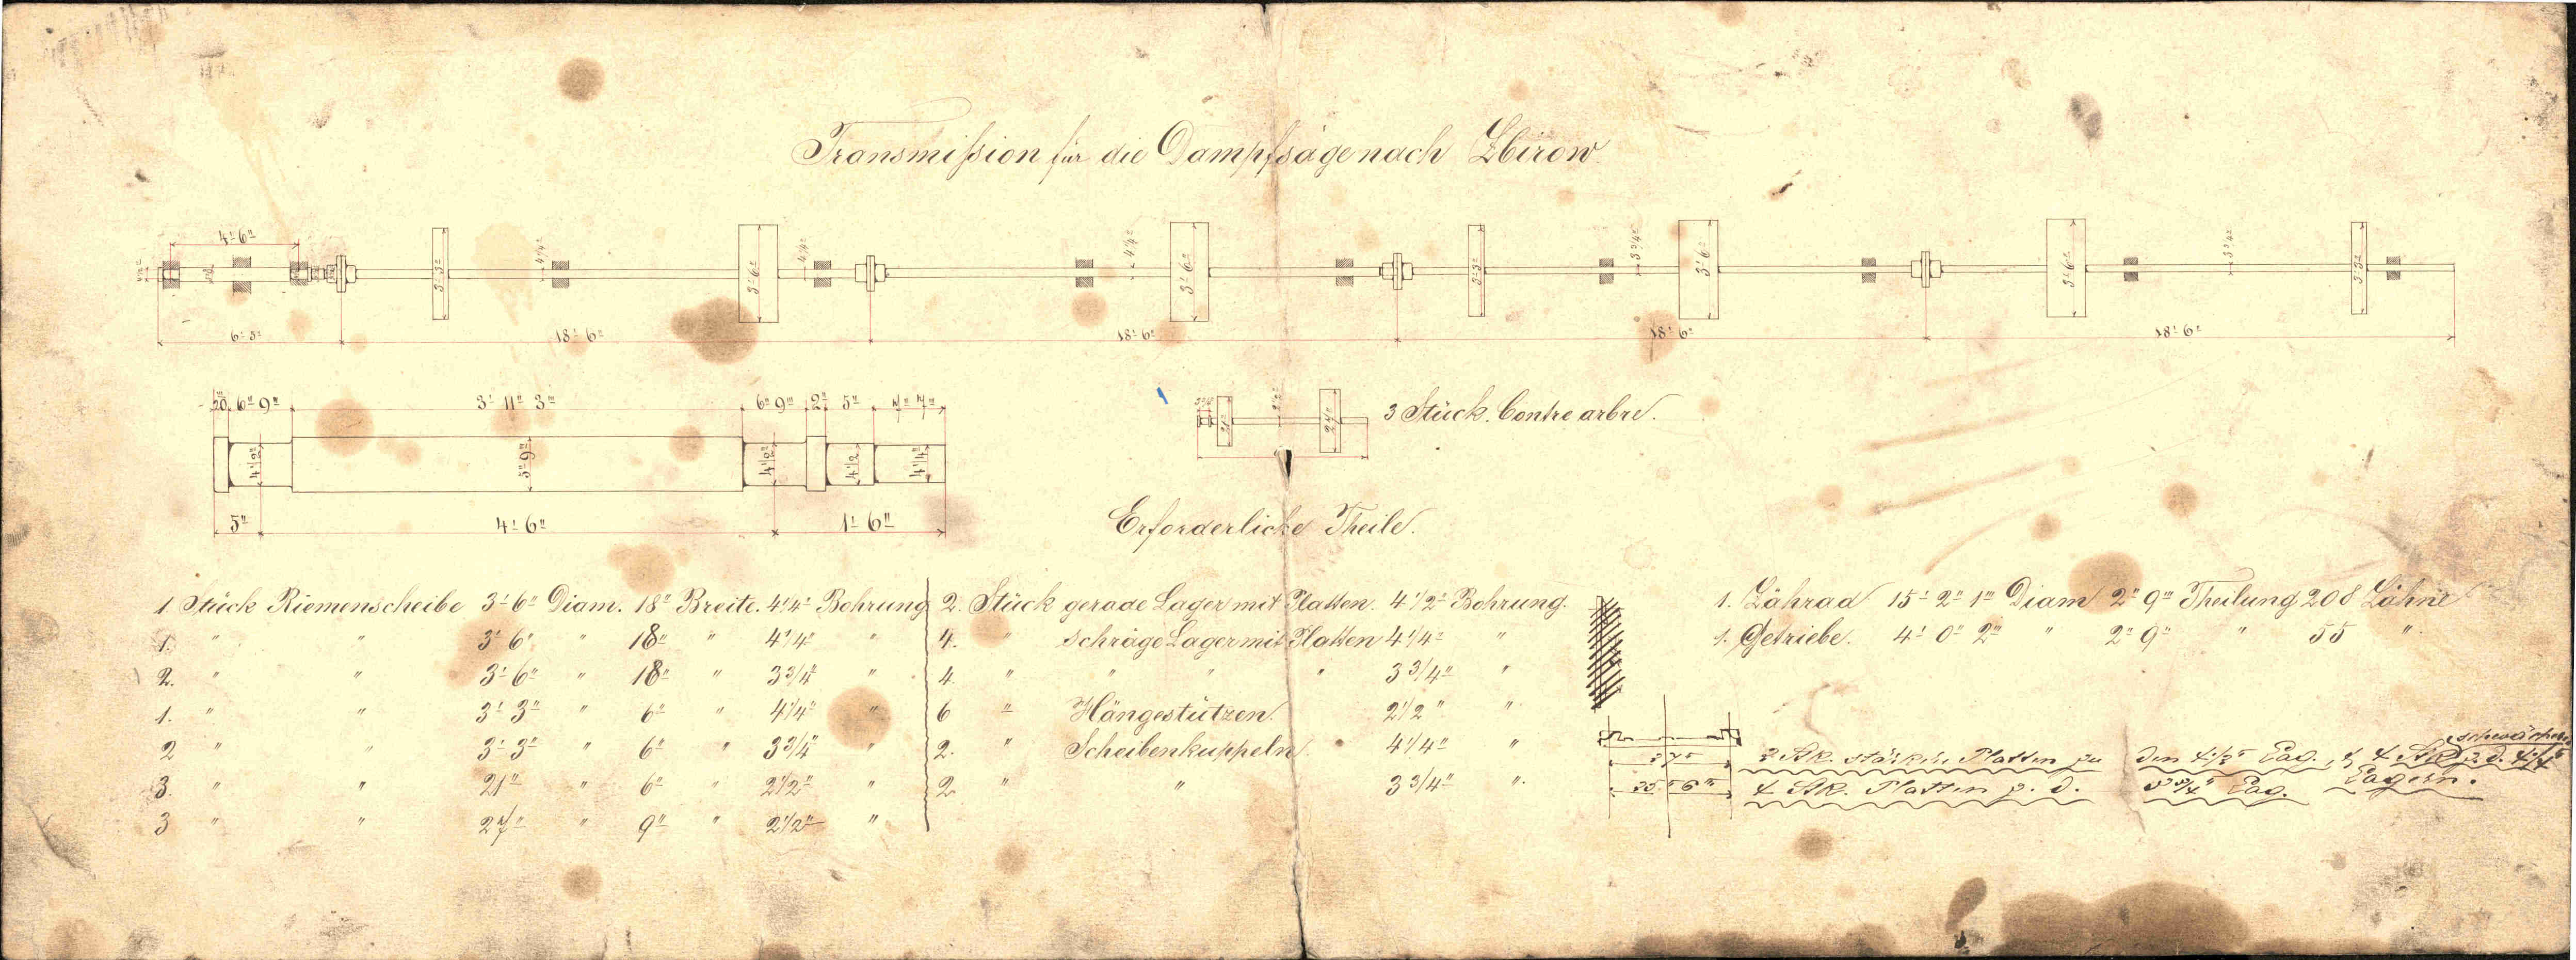 Transmißion für die Dampfsäge nach Zbirow.
4' 6"
3' 3"
4 1/4"
3' 6"
4 1/4"
4 1/4"
3' 6"
3' 3"
3 3/4"
3' 6"
3' 6"
3 3/4"
3' 3"
18' 6"
18' 6"
18' 6"
18' 6"
6" 9'"
3' 11" 3'"
6" 9'"
2"
5"
7" 7'"
4 1/2"
5" 9'"
4 1/2"
4 1/2
4 1/4"
5"
4' 6"
1' 6"
3 Stück Contre arbre.
Erforderliche Theile.
1 Stück Riemenscheibe 3' 6" Diam. 18" Breite. 4 1/4" Bohrung
1. " " 3' 6" " 18" " 4 1/4" "
2. " " 3' 6" " 18" " 3 3/4" "
1. " " 3' 3" " 6" " 4 1/4" "
2 " " 3' 3" " 6" " 3 3/4" "
3. " " 21" " 6" " 2 1/2" "
3 " " 27" " 9" " 2 1/2" "
2. Stück gerade Lager mit Platten. 4 1/2" Bohrung.
4. " Schräge Lager mit Platten 4 1/4" "
4. " " " " 3 3/4" "
6 " Hängestützen. 2 1/2" "
2. " Scheibenkuppeln. 4 1/4" "
2. " " 3 3/4" "
1. Zährad 15' 2" 1'" Diam 2" 9'" Theilung 208 Zähne
1. Getriebe. 4' 0" 2'" " 2" 9'" " 55 "
schwächere
2 Stk. stärkere Platten zu den 4 1/2" Lag., 4 Stk z. d. 4 1/4"
Lagern.
4 Stk. Platten z. d. 3 3/4" Lag.